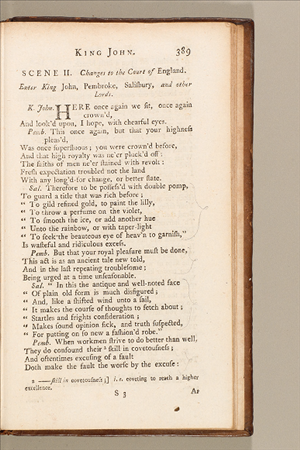 KING JOHN. 389
SCENE II. Changes to the Court of England.
Enter King John, Pembroke, Salisbury, and other
Lords.
K. John. HERE once again we sit, once again
crown'd,
And look'd upon, I hope, with chearful eyes.
Pemb. This once again, but that your highness
pleas'd,
Was once superfluous; you were crown'd before,
And that high royalty was ne'er pluck'd off:
The faiths of men ne'er stained with revolt:
Fresh expectation troubled not the land
With any long'd-for change, or better state.
Sal. Therefore to be possess'd with double pomp,
To guard a title that was rich before;
" To gild refined gold, to paint the lilly,
" To throw a perfume on the violet,
" To smooth the ice, or add another hue
" Unto the rainbow, or with taper-light
" To seek the beauteous eye of heav'n to garnish,"
Is wasteful and ridiculous excess.
Pemb. But that your royal pleasure must be done,
This act is as an ancient tale new told,
And in the last repeating troublesome;
Being urged at a time unseasonable.
Sal. " In this the antique and well-noted face
" Of plain old form is much disfigured;
" And, like a shifted wind unto a sail,
" It makes the course of thoughts to fetch about;
" Startles and frights consideration;
" Makes sound opinion sick, and truth suspected,
" For putting on so new a fashion'd robe."
Pemb. When workmen strive to do better than well,
They do confound their ² skill in covetousness;
And oftentimes excusing of a fault
Doth make the fault the worse by the excuse:
2 —skill in covetousness;] i. e. coveting to reach a higher
excellence.
S 3 As